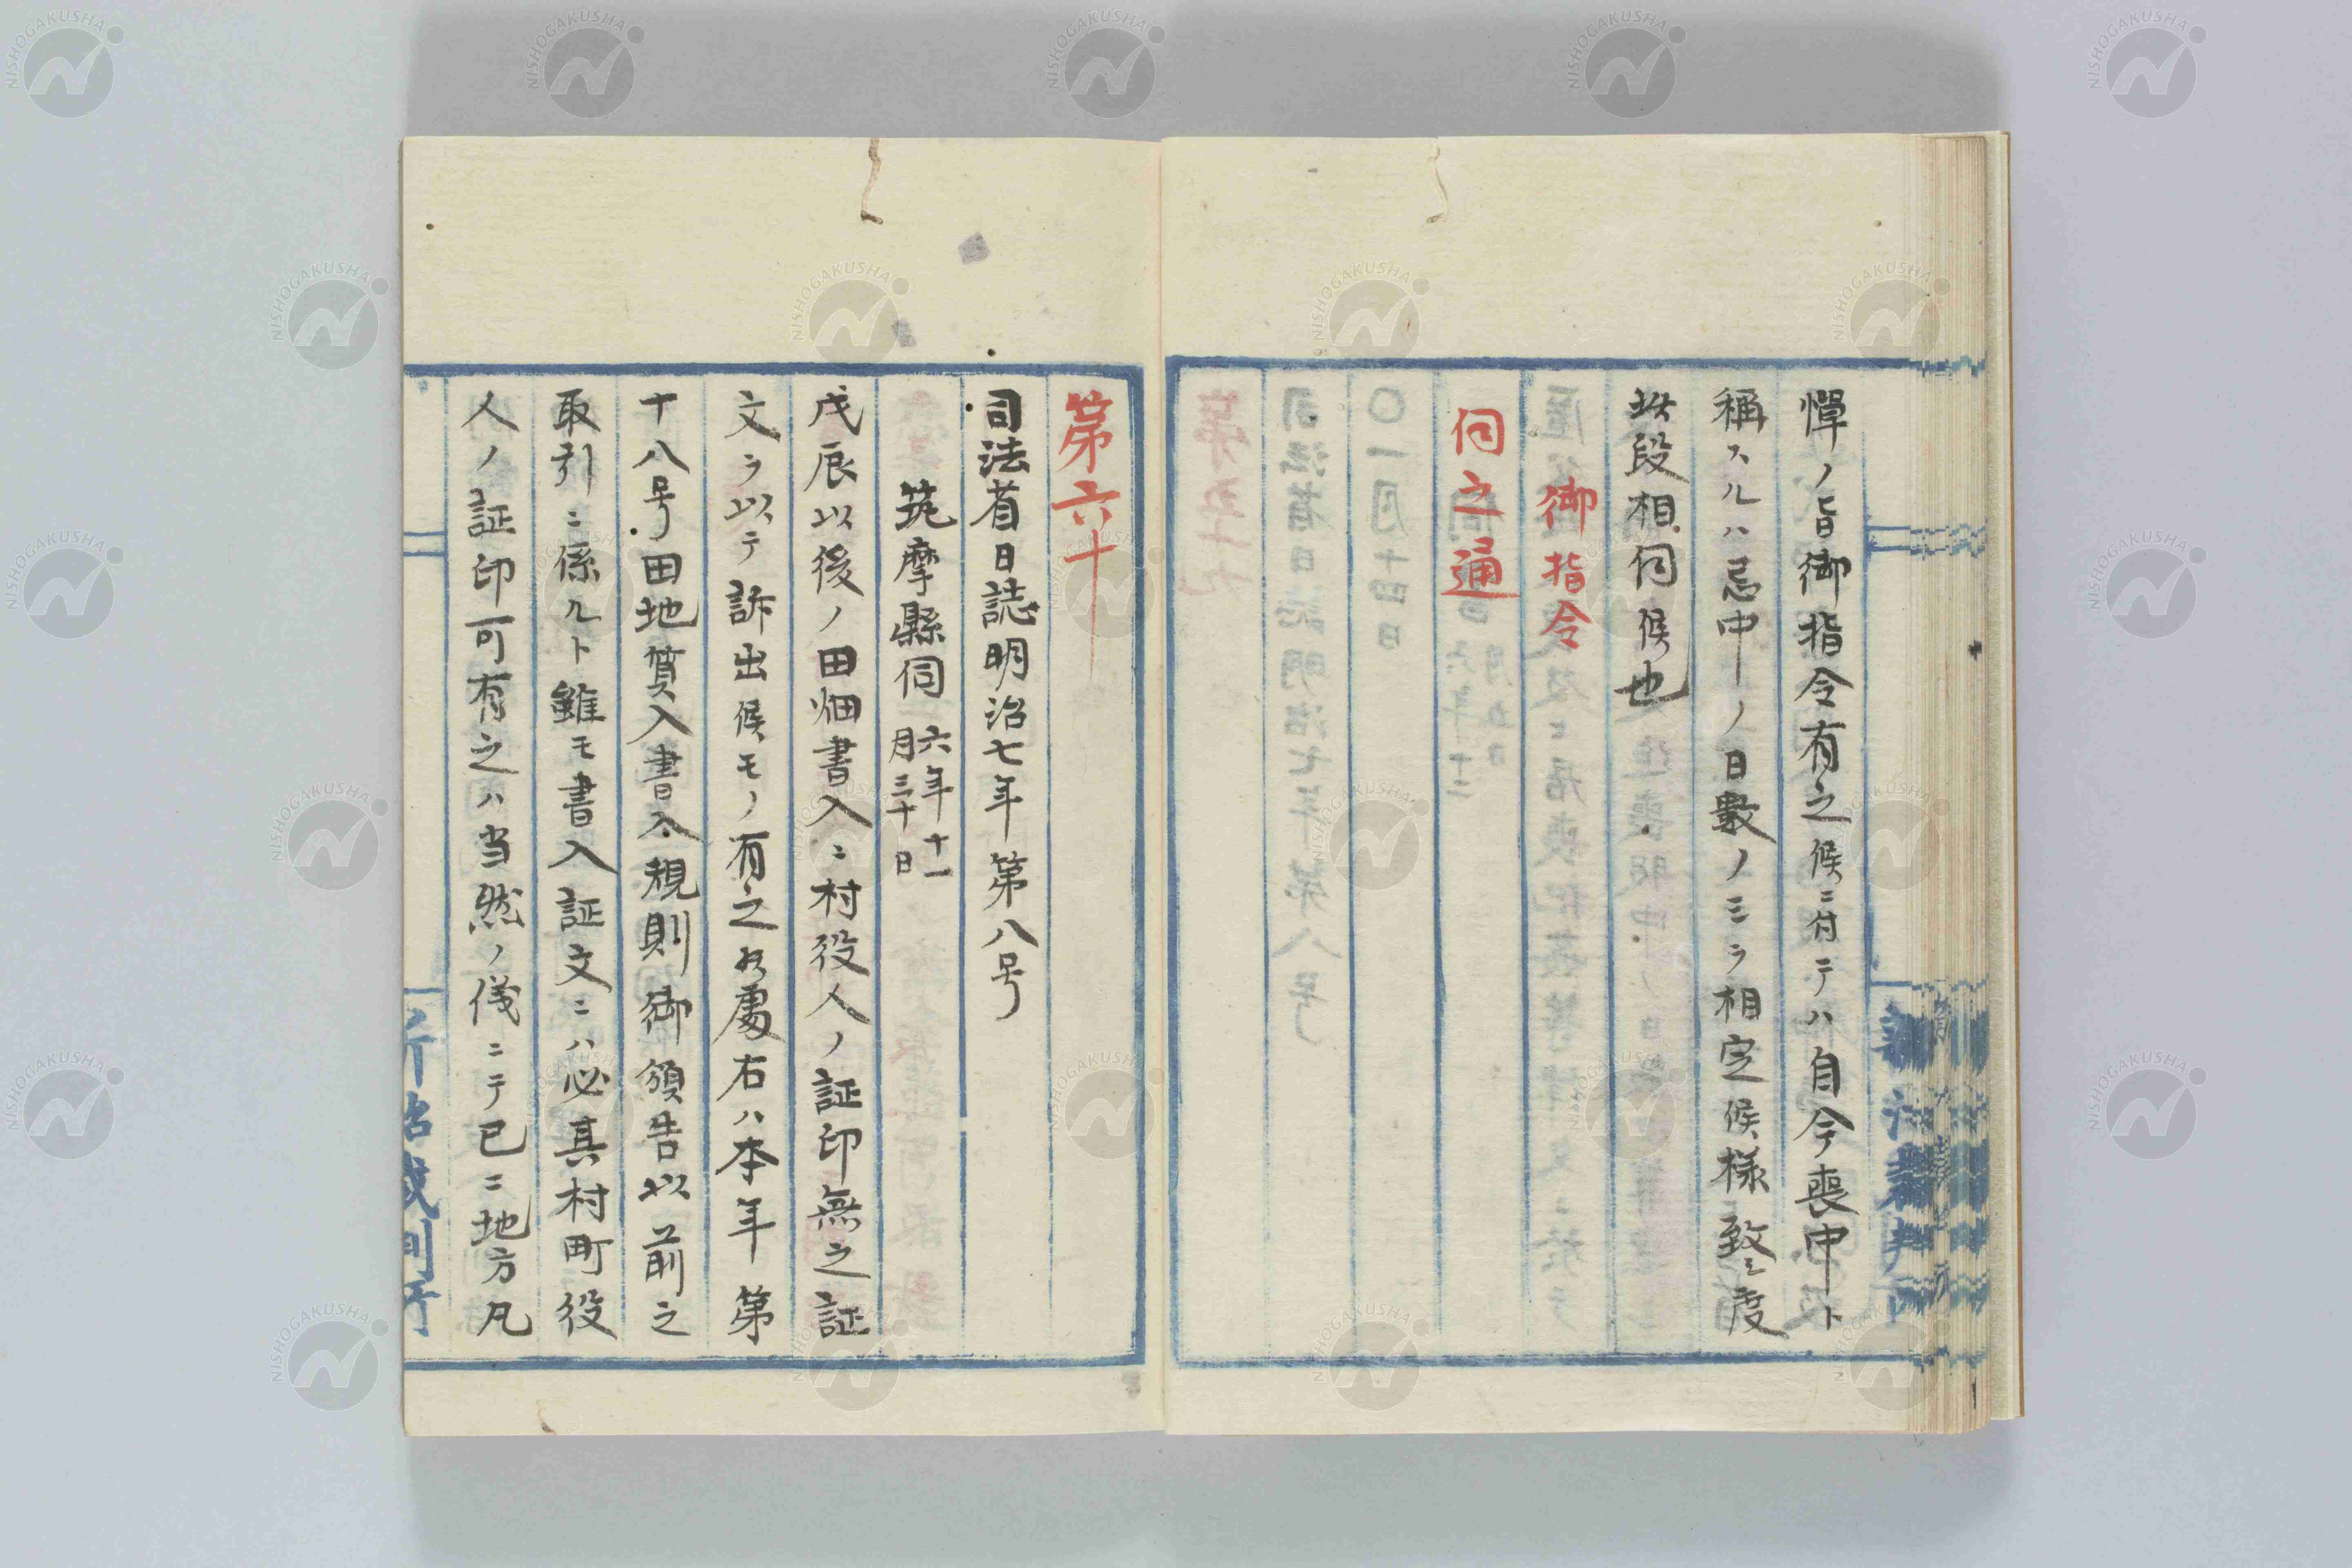 憚ノ旨御指令有之候ニ付テハ自今喪中ト
稱スルハ忌中ノ日數ノミヲ相定候様致度
此段相伺候也
御指令
伺之通
第六十
司法省日誌明治七年第八号
筑摩縣伺 六年十一月三十日
戊辰以後ノ田畑書入ニ村役人ノ証印無之証
文ヲ以テ訴出候モノ有之候處右ハ本年第
十八号田地質入書入規則御頒告以前之
取引ニ係ルト雖モ書入証文ニハ必其村町役
人ノ証印可有之ハ当然ノ儀ニテ已ニ地方凡
NISHOGAKUSHA